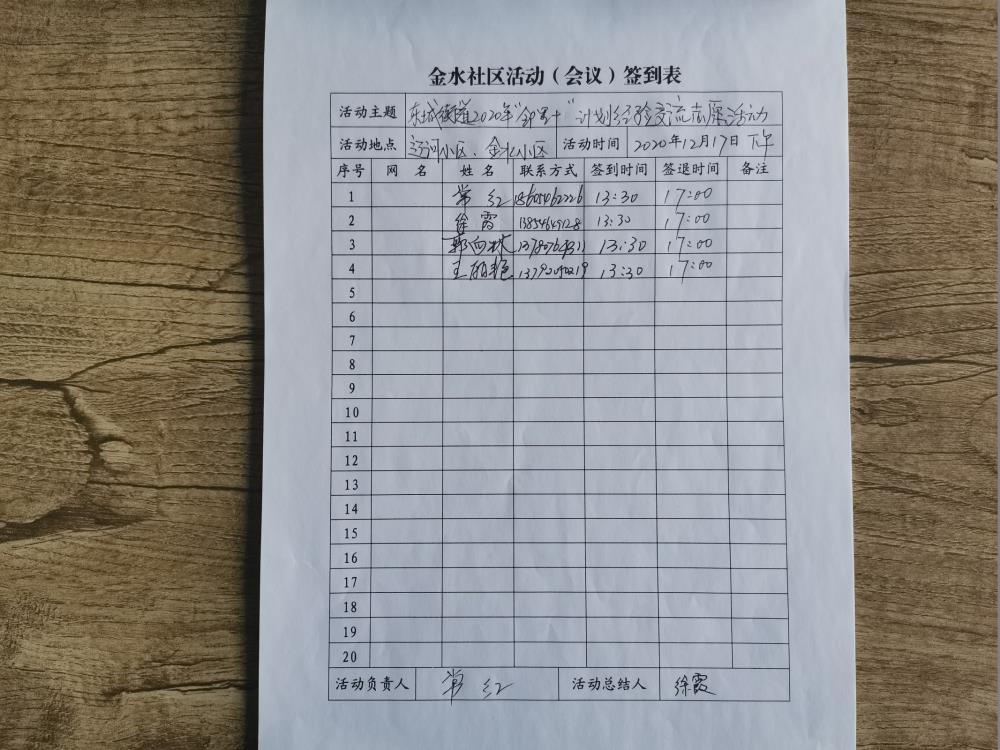 金水社区活动（会议）签到表
活动主题 东城街道2020年“ 十”计划经验交流志愿活动
活动地点 河小区、金水小区 活动时间 2020年12月17日 下午
序号 网 名 姓 名 联系方式 签到时间 签退时间 备注
1 常 红 13:30 17:00
2 徐霞 13:30 17:00
3 郭向林 13:30 17:00
4 王 艳 13:30 17:00
5
6
7
8
9
10
11
12
13
14
15
16
17
18
19
20
活动负责人 常红 活动总结人 徐霞